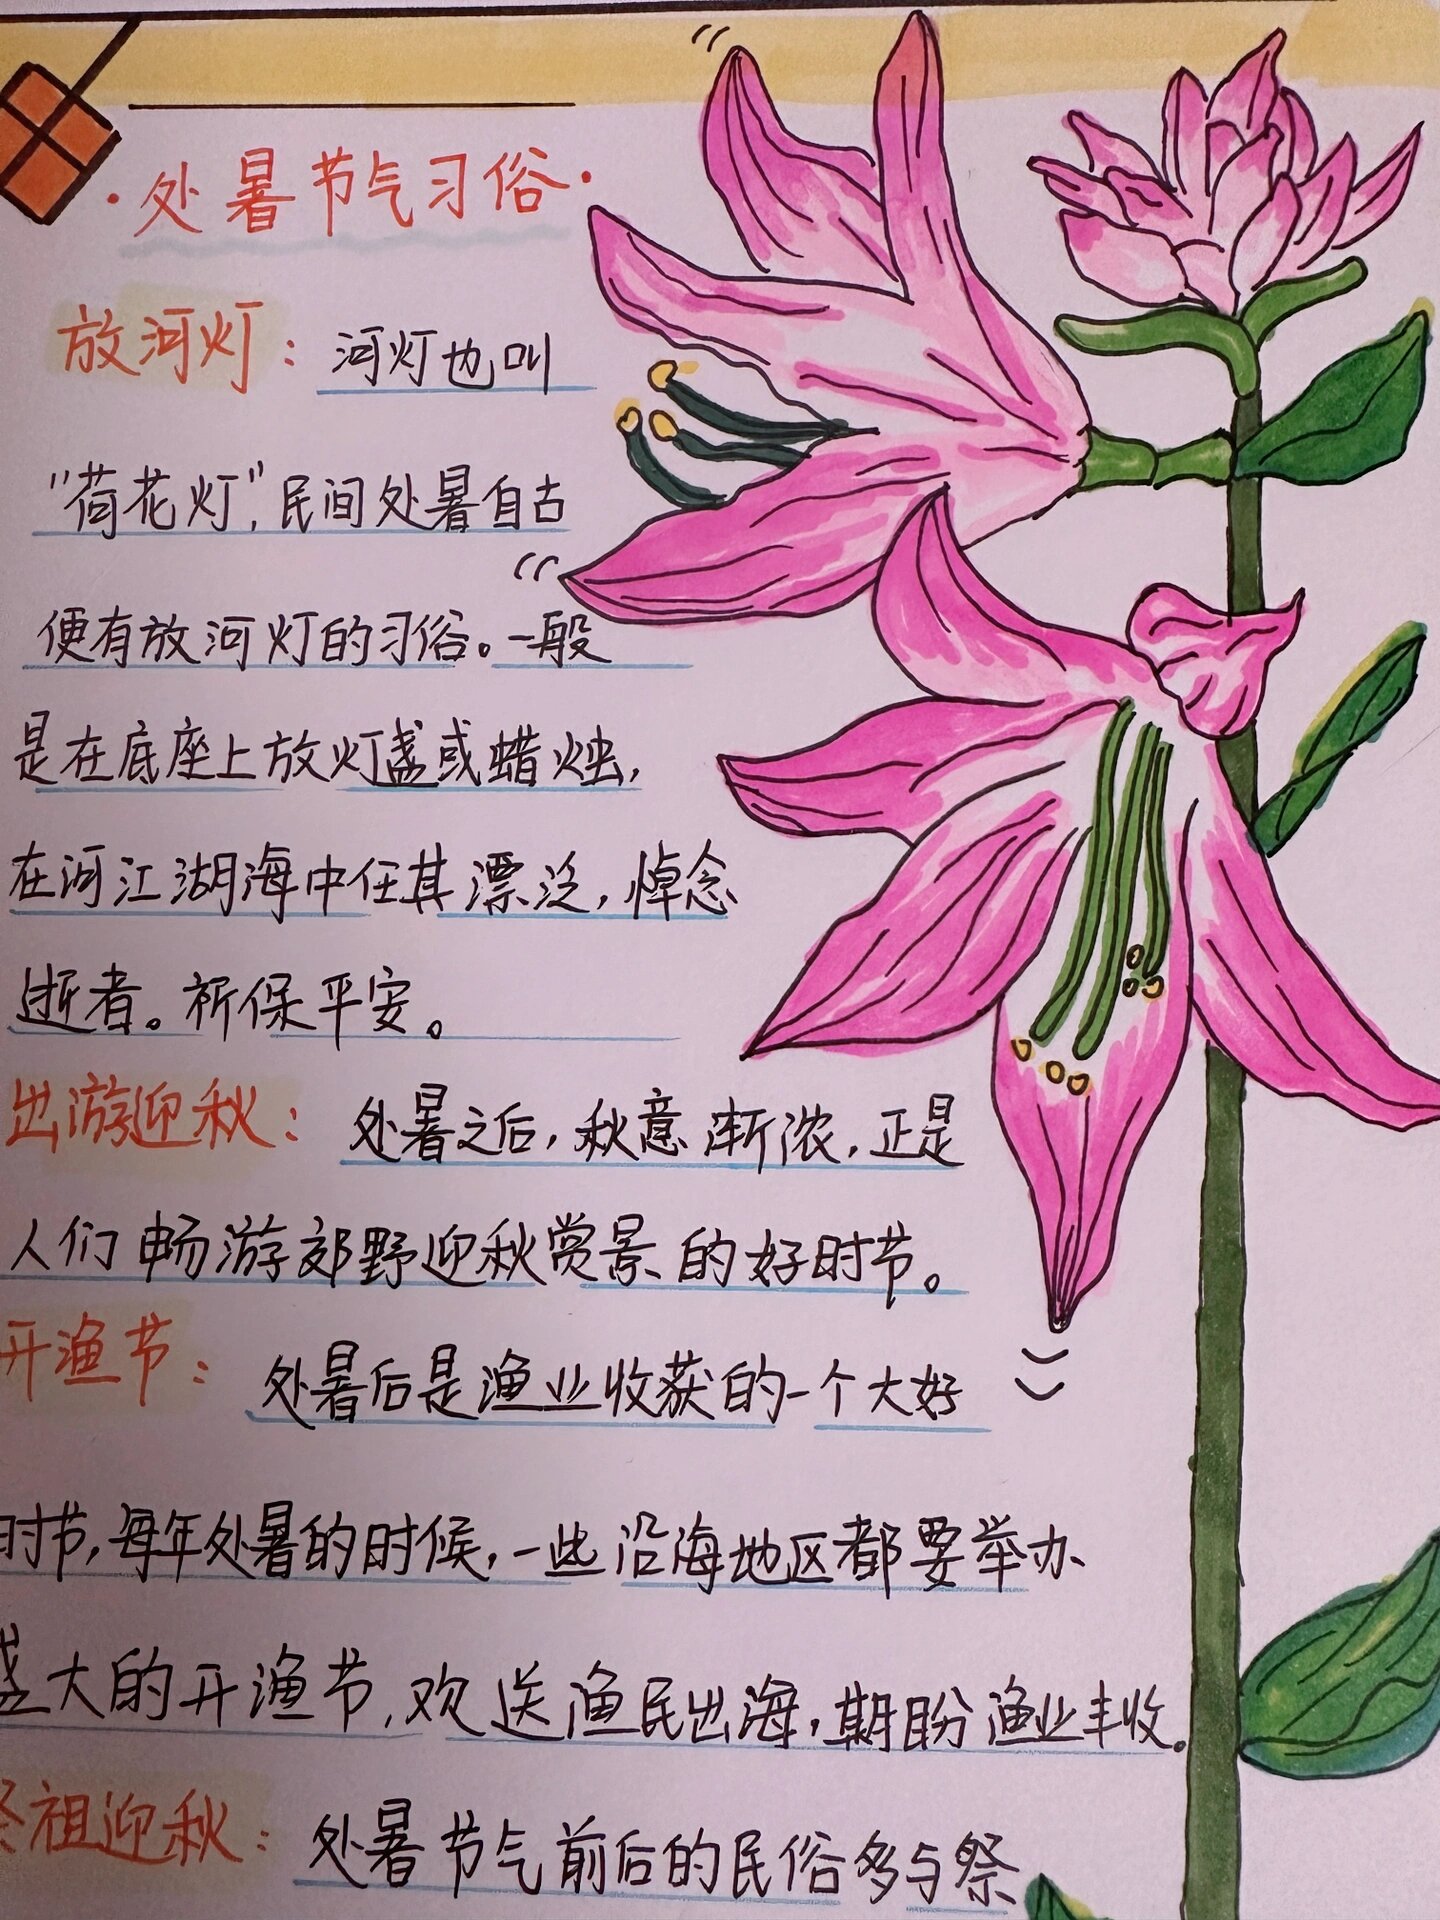 ·处暑节气习俗·
放河灯：河灯也叫
“荷花灯”，民间处暑自古
便有放河灯的习俗。一般
是在底座上放灯盏或蜡烛，
在河江湖海中任其漂泛，悼念
逝者。祈保平安。
出游迎秋：处暑之后，秋意渐浓，正是
人们畅游郊野迎秋赏景的好时节。
开渔节：处暑后是渔业收获的一个大好
时节，每年处暑的时候，一些沿海地区都要举办
盛大的开渔节，欢送渔民出海，期盼渔业丰收。
祭祖迎秋：处暑节气前后的民俗多与祭